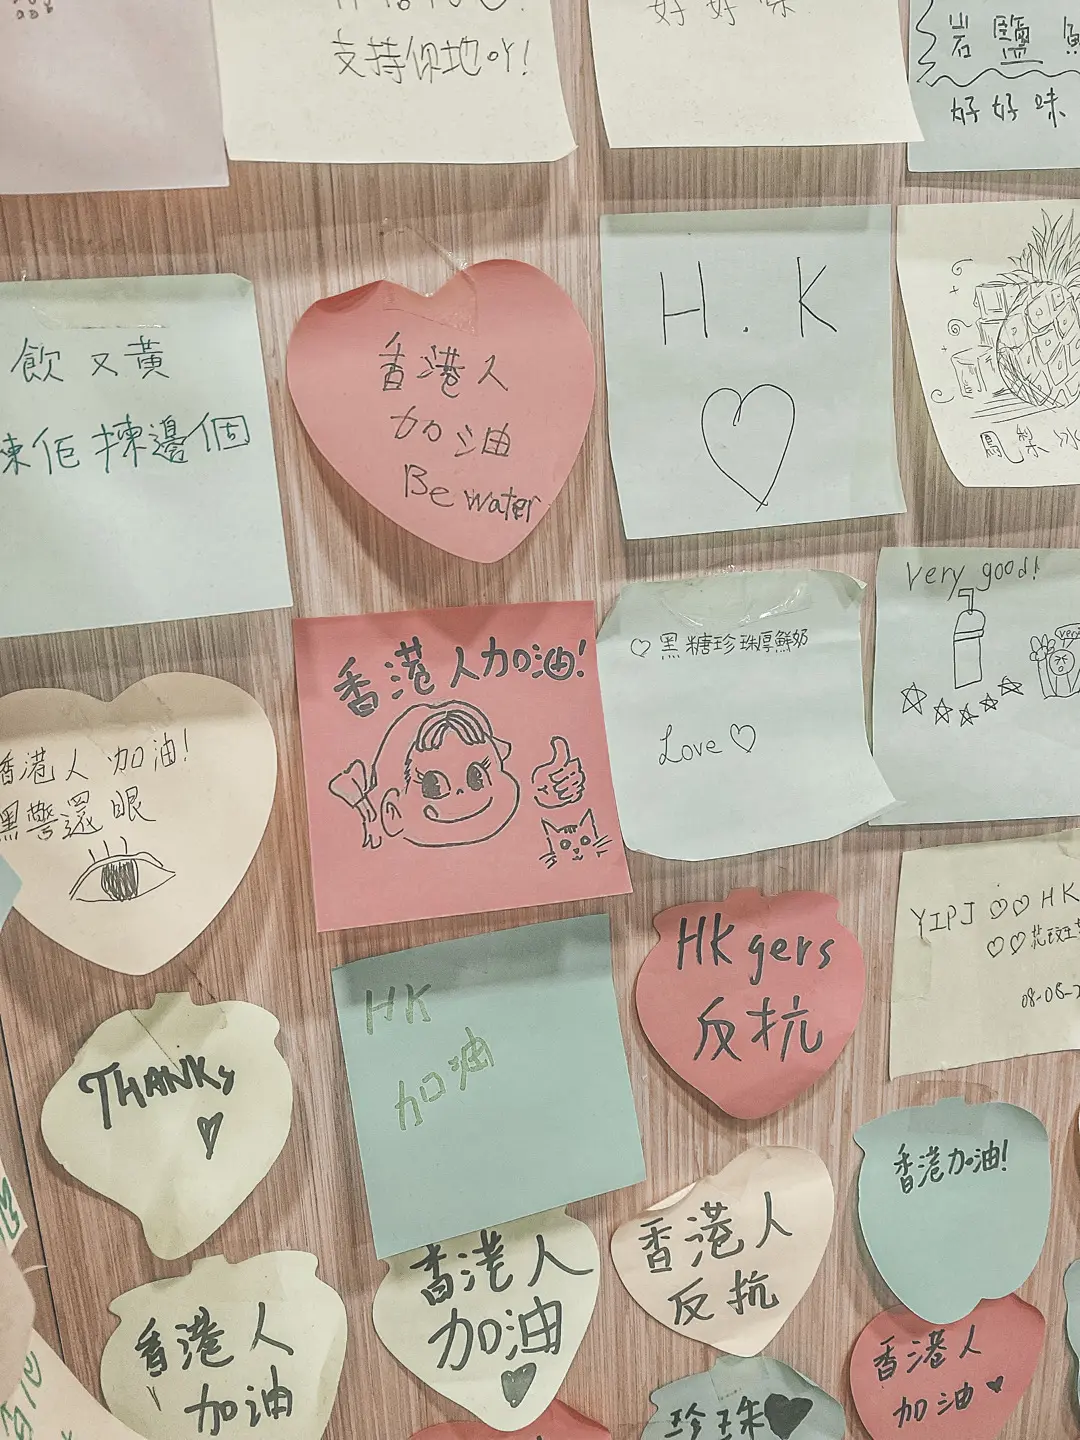 支持你地吖!
好好味
岩鹽
好好味
飲又黃
揀佢揀邊個
香港人
加油
Be water
H.K
鳳梨冰
香港人加油!
黑警還眼
香港人加油!
♡黑糖珍珠厚鮮奶
Love ♡
Very good!
very
YIPJ ♡♡ HK
♡♡花斑
08-08-2
THANKS
♡
HK
加油
HKgers
反抗
香港加油!
香港人
加油
香港人
加油
♥
香港人
反抗
珍珠♥
香港人
加油♥